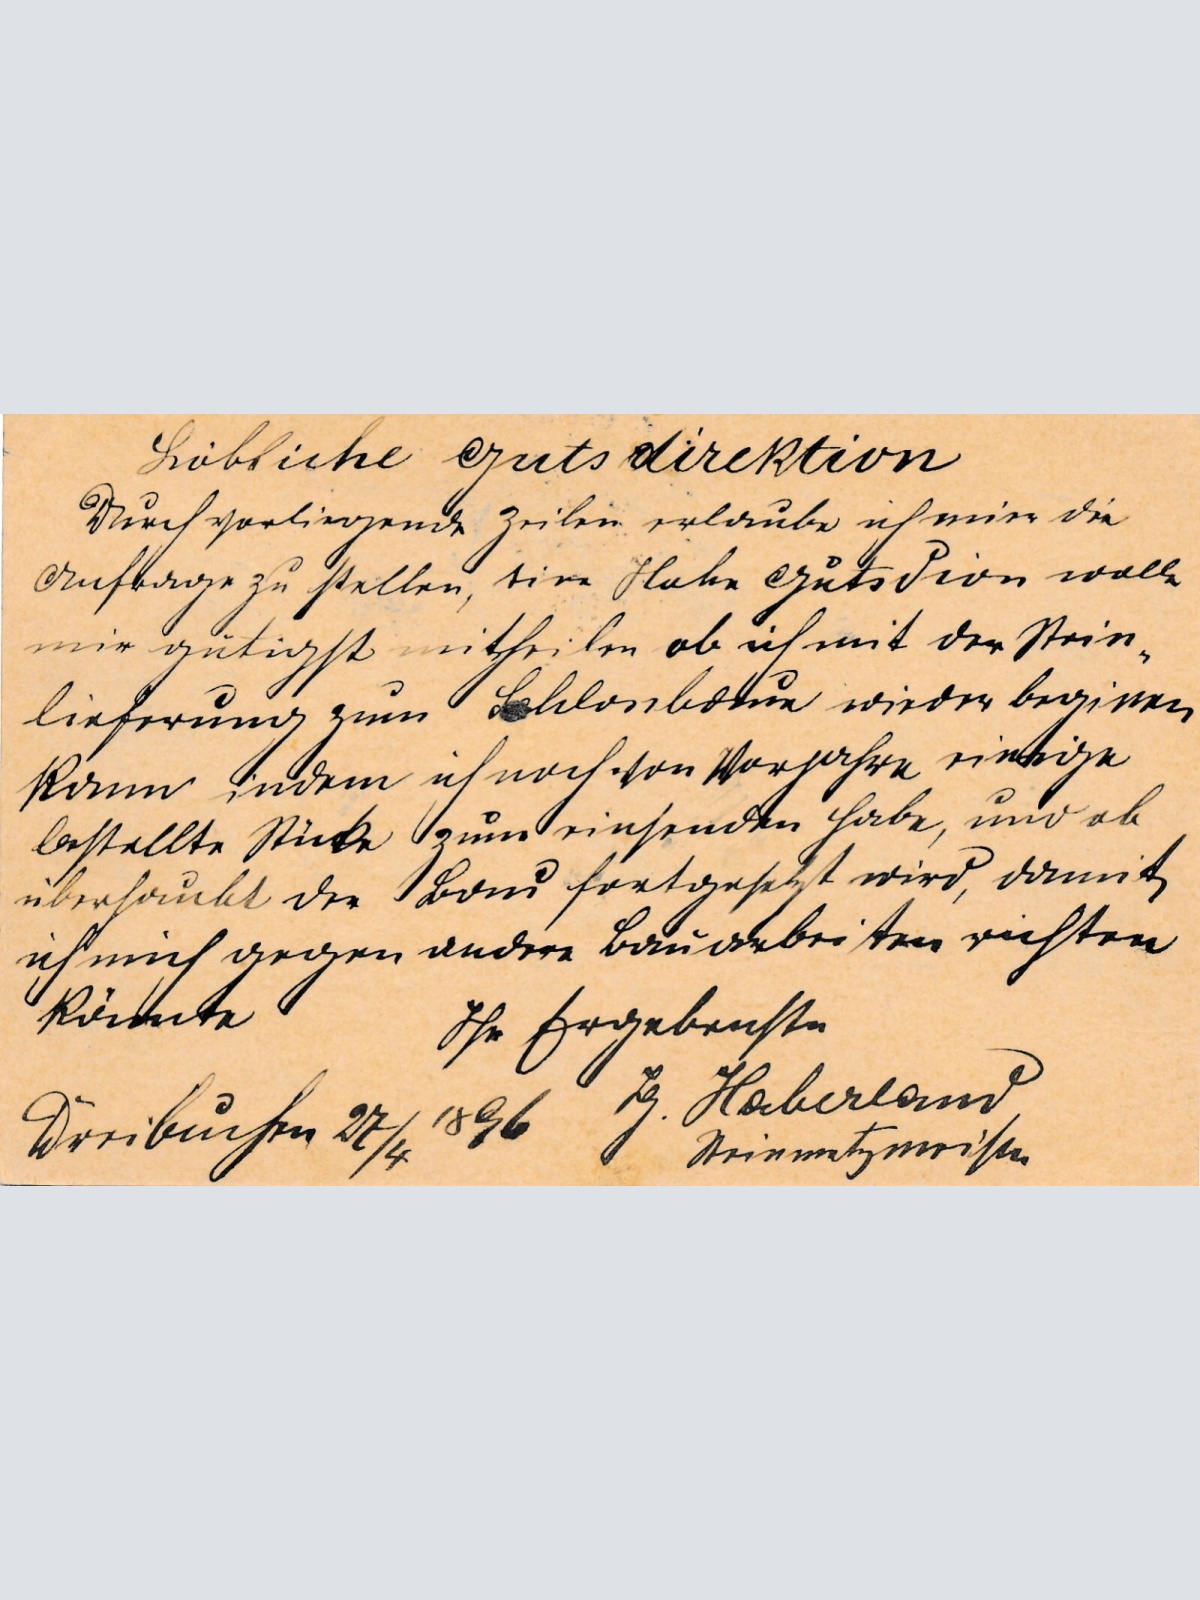 Löbliche Gutsdirektion
Durch vorliegende Zeilen erlaube ich mier die
Anfrage zu stellen, eine Hohe Gutsdion wolle
mir gütigst mittheilen ob ich mit der Stein-
lieferung zum wieder beginen
kann indem ich noch von Vorjahre einige
bestellte Stücke zum einsenden habe, und ob
überhaubt der Bau fortgesetzt wird, damit
ich mich gegen andere Bauarbeiten richten
könnte
Ihr Ergebenster
Haberland
Steinmetzmeister
Dreibuchen 27/4 1896